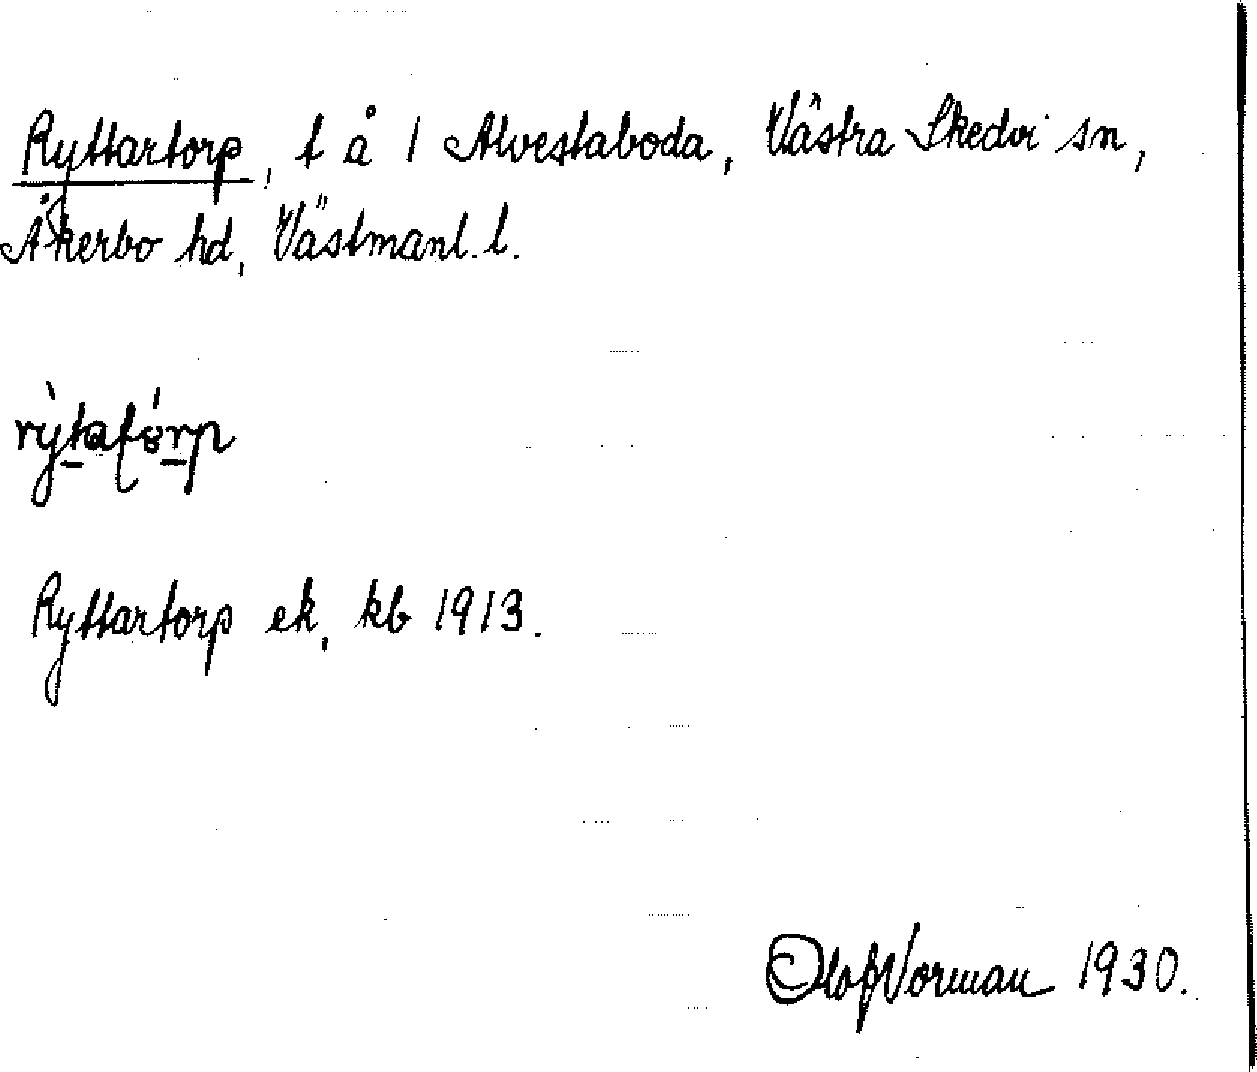 Ryttartorp, t å 1 Alvestaboda, Västra Skedvi sn,
Åkerbo hd, Västmanl. l.
Ryttartorp ek, kb 1913.
Olof Norman 1930.